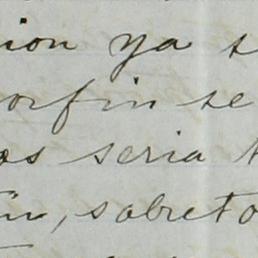 ion ya s
orfin se
os seria t
in, sobreto